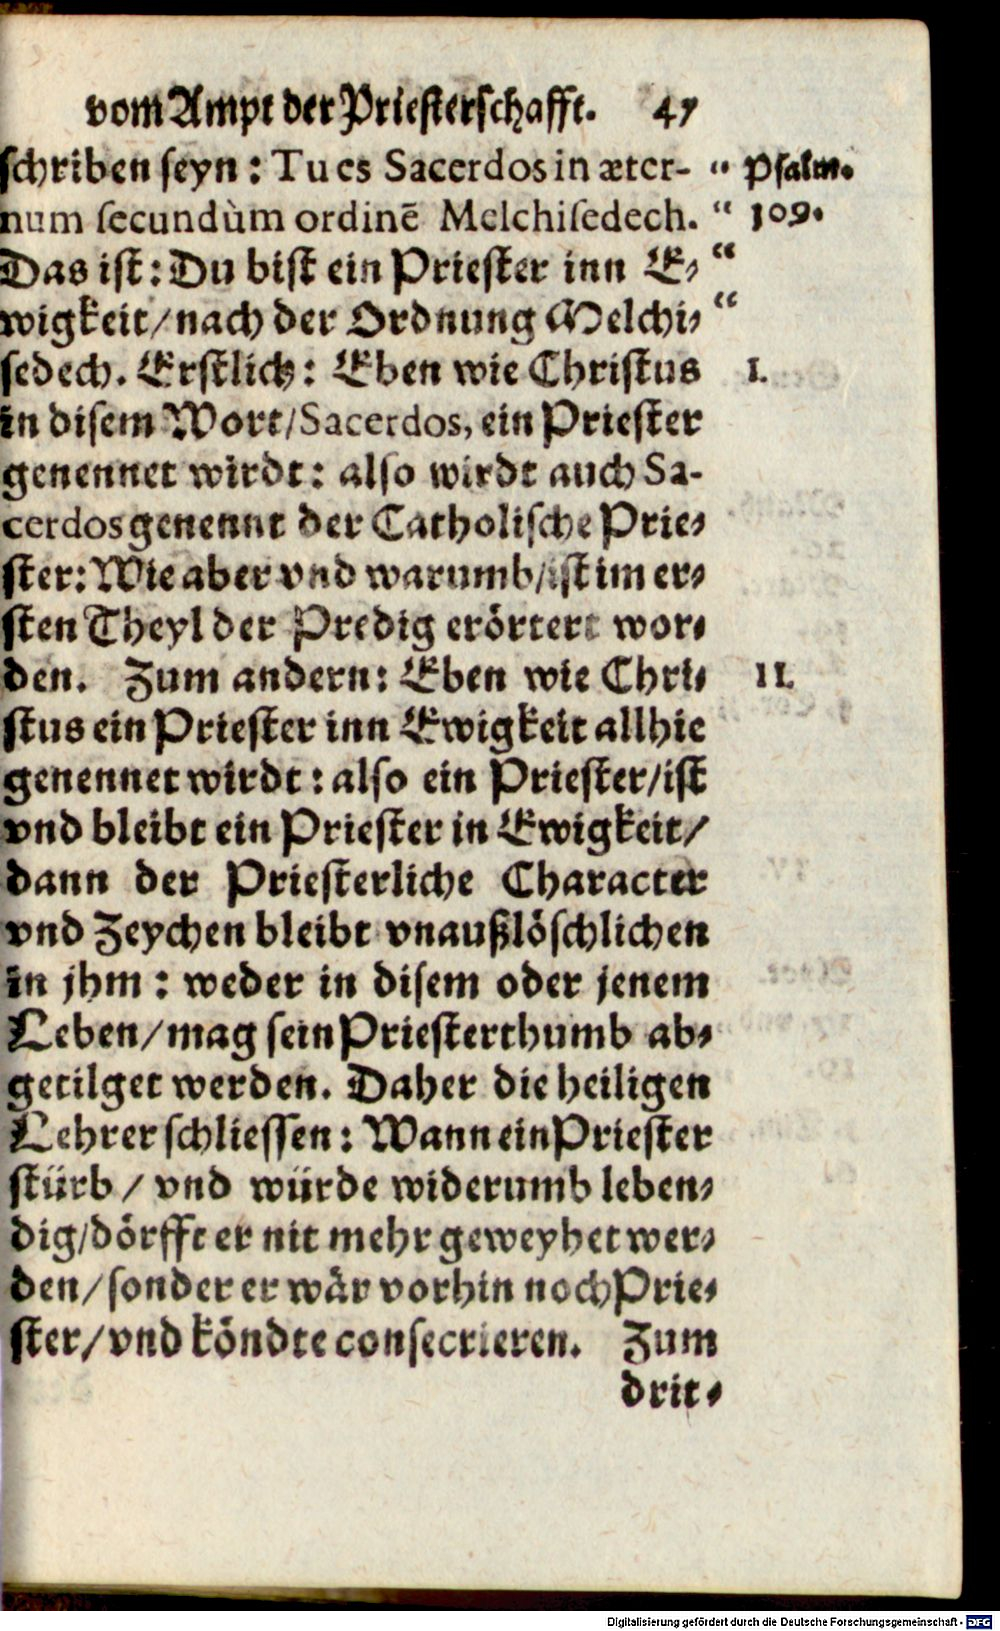 vom Ampt der Priesterschafft. 47
schriben seyn: Tu es Sacerdos in æter- “ Psalm.
num secundùm ordinē Melchisedech. “ 109.
Das ist: Du bist ein Priester inn E- “
wigkeit/nach der Ordnung Melchi- “
sedech. Erstlich: Eben wie Christus I.
in disem Wort/Sacerdos, ein Priester
genennet wirdt: also wirdt auch Sa-
cerdos genennt der Catholische Prie-
ster: Wie aber vnd warumb/ist im er-
sten Theyl der Predig erörtert wor-
den. Zum andern: Eben wie Chri- II.
stus ein Priester inn Ewigkeit allhie
genennet wirdt: also ein Priester/ist
vnd bleibt ein Priester in Ewigkeit/
dann der Priesterliche Character
vnd Zeychen bleibt vnaußlöschlichen
in jhm: weder in disem oder jenem
Leben/mag sein Priesterthumb ab-
getilget werden. Daher die heiligen
Lehrer schliessen: Wann ein Priester
stürb/ vnd würde widerumb leben-
dig/dörfft er nit mehr geweyhet wer-
den/sonder er wär vorhin noch Prie-
ster/vnd köndte consecrieren. Zum
drit-
Digitalisierung gefördert durch die Deutsche Forschungsgemeinschaft - DFG